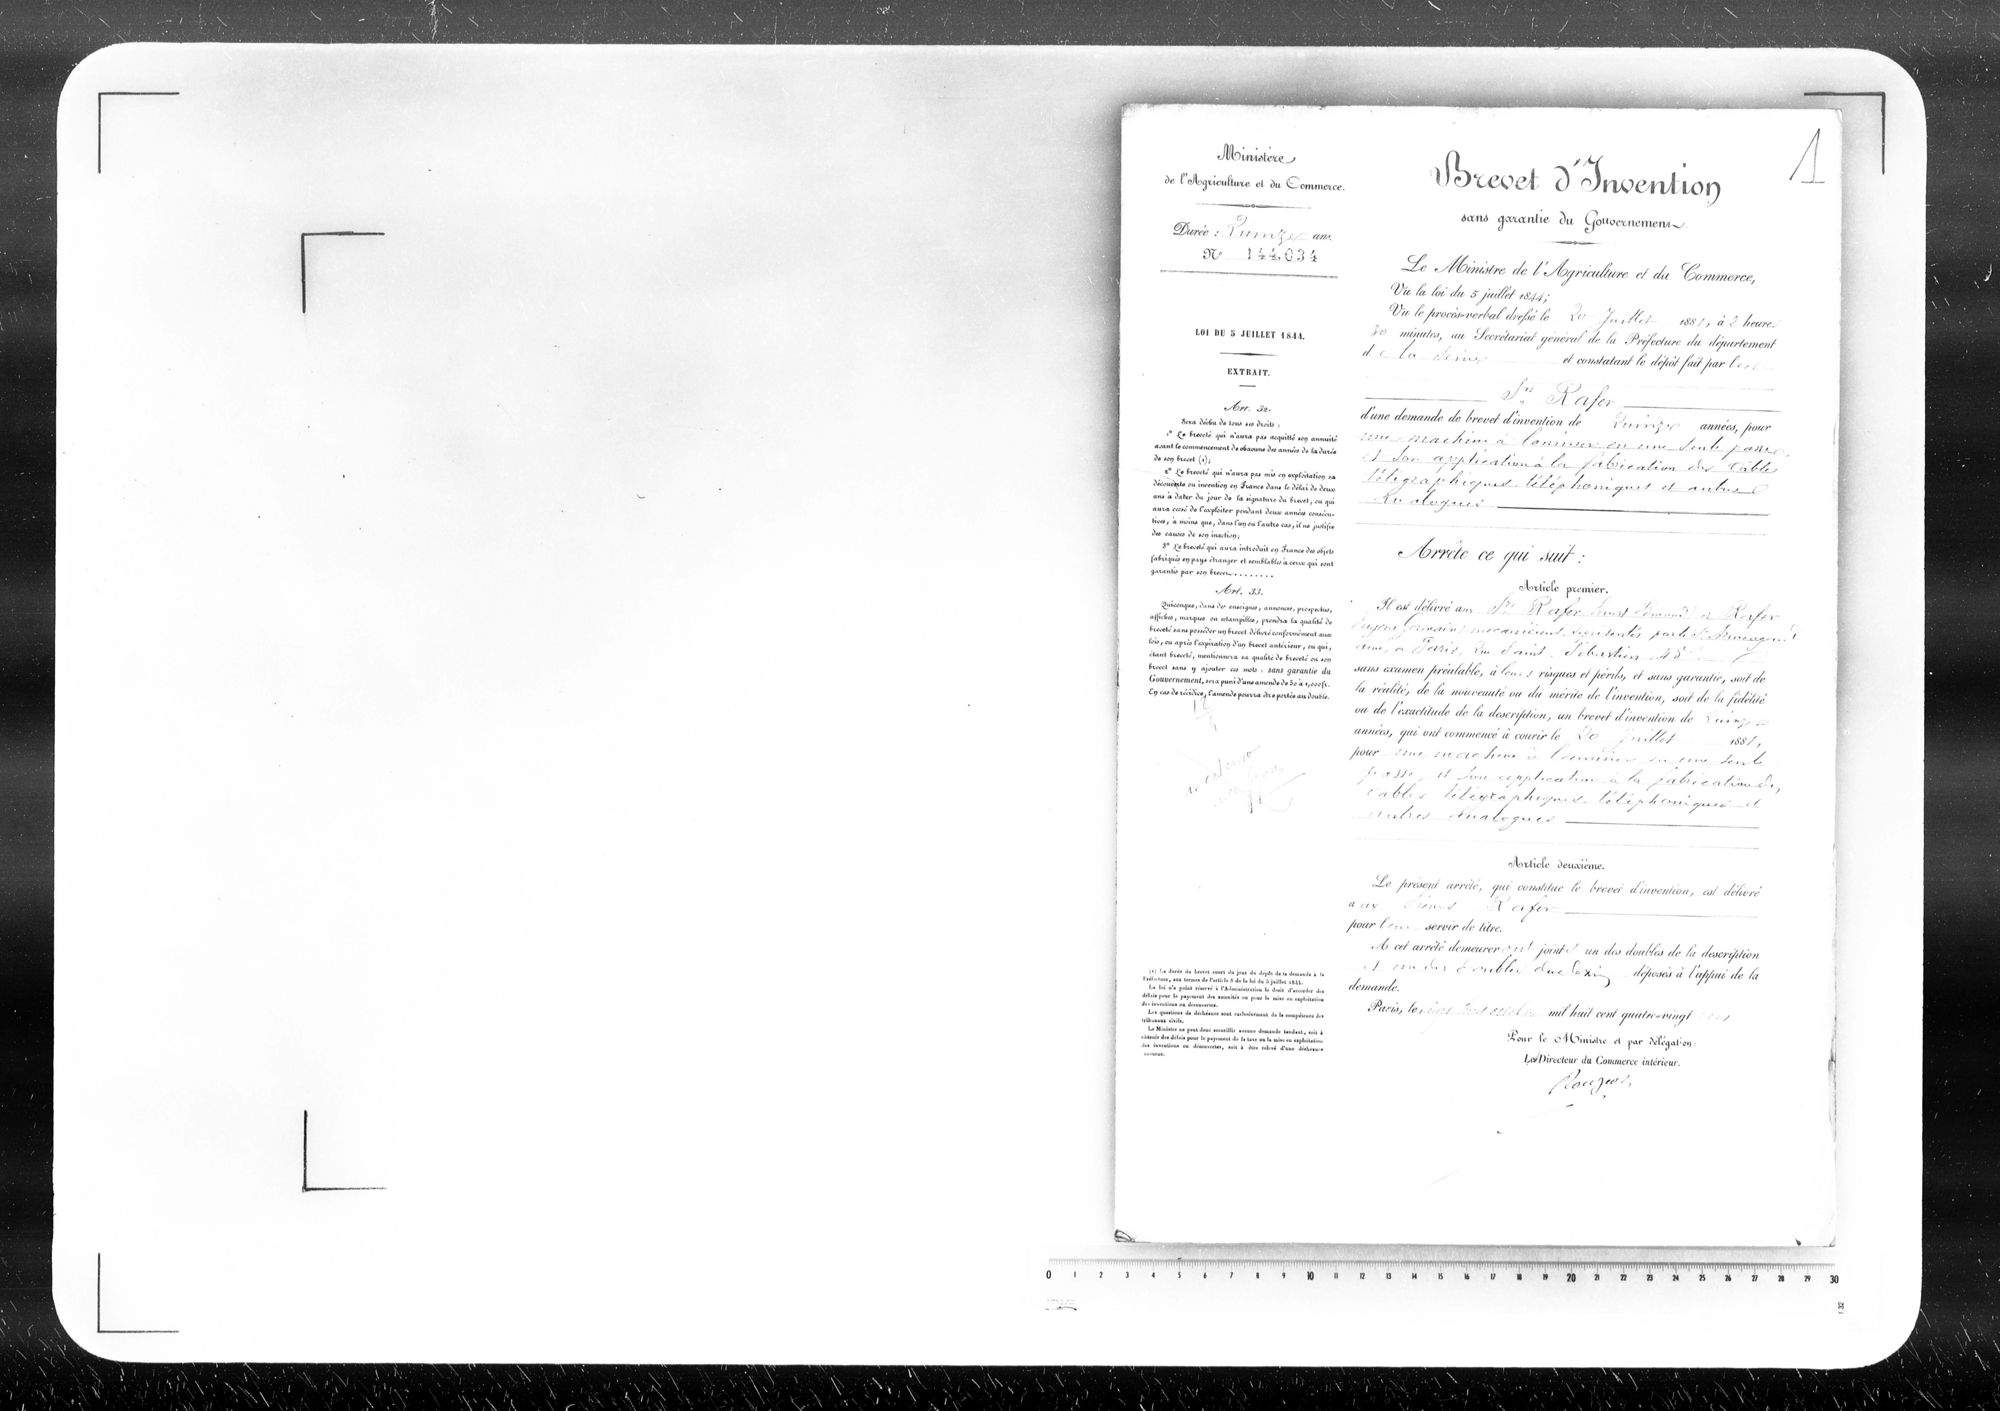 1
Ministère
de l'Agriculture et du Commerce.
Durée : Quinze ans.
N° 144,034
LOI DU 5 JUILLET 1844.
EXTRAIT.
Art. 32.
Sera déchu de tous ses droits :
1° Le breveté qui n'aura pas acquitté son annuité
avant le commencement de chacune des années de la durée
de son brevet (1);
2° Le breveté qui n'aura pas mis en exploitation sa
découverte ou invention en France dans le délai de deux
ans à dater du jour de la signature du brevet, ou qui
aura cessé de l'exploiter pendant deux années consécu-
tives, à moins que, dans l'un ou l'autre cas, il ne justifie
des causes de son inaction;
3° Le breveté qui aura introduit en France des objets
fabriqués en pays étranger et semblables à ceux qui sont
garantis par son brevet.........
Art. 33.
Quiconque, dans des enseignes, annonces, prospectus,
affiches, marques ou estampilles, prendra la qualité de
breveté sans posséder un brevet délivré conformément aux
lois, ou après l'expiration d'un brevet antérieur, ou qui,
étant breveté, mentionnera sa qualité de breveté ou son
brevet sans y ajouter ces mots : sans garantie du
Gouvernement, sera puni d'une amende de 50 à 1,000 fr.
En cas de récidive, l'amende pourra être portée au double.
(1) La durée du brevet court du jour du dépôt de la demande à la
Préfecture, aux termes de l'article 8 de la loi du 5 juillet 1844.
La loi n'a point réservé à l'Administration le droit d'accorder des
délais pour le payement des annuités ou pour la mise en exploitation
des inventions ou découvertes.
Les questions de déchéance sont exclusivement de la compétence des
tribunaux civils.
Le Ministre ne peut donc accueillir aucune demande tendant, soit à
obtenir des délais pour le payement de la taxe ou la mise en exploitation
des inventions ou découvertes, soit à être relevé d'une déchéance
encourue.
Brevet d'Invention
sans garantie du Gouvernement.
Le Ministre de l'Agriculture et du Commerce,
Vu la loi du 5 juillet 1844;
Vu le procès-verbal dressé le 20 Juillet 1881, à 2 heures
30 minutes, au Secrétariat général de la Préfecture du département
de la Seine et constatant le dépôt fait par les
Srs Rafer
d'une demande de brevet d'invention de Quinze années, pour
une machine à laminer en une seule passe,
et son application à la fabrication des câbles
télégraphiques, téléphoniques et autres
analogues
Arrête ce qui suit :
Article premier.
Il est délivré aux Srs Rafer Edmond et Rafer
Germain, mécaniciens, représentés par le Sr Armengaud
à Paris, rue Saint-Sébastien 45
sans examen préalable, à leurs risques et périls, et sans garantie, soit de
la réalité, de la nouveauté ou du mérite de l'invention, soit de la fidélité
ou de l'exactitude de la description, un brevet d'invention de quinze
années, qui ont commencé à courir le 20 juillet 1881,
pour une machine à laminer en une seule
passe, et son application à la fabrication des
câbles télégraphiques, téléphoniques et
autres analogues
Article deuxième.
Le présent arrêté, qui constitue le brevet d'invention, est délivré
aux Sieurs Rafer
pour leur servir de titre.
A cet arrêté demeureront joints un des doubles de la description
et un des doubles du dessin déposés à l'appui de la
demande.
Paris, le mil huit cent quatre-vingt
Pour le Ministre et par délégation :
Le Directeur du Commerce intérieur.
0 1 2 3 4 5 6 7 8 9 10 11 12 13 14 15 16 17 18 19 20 21 22 23 24 25 26 27 28 29 30